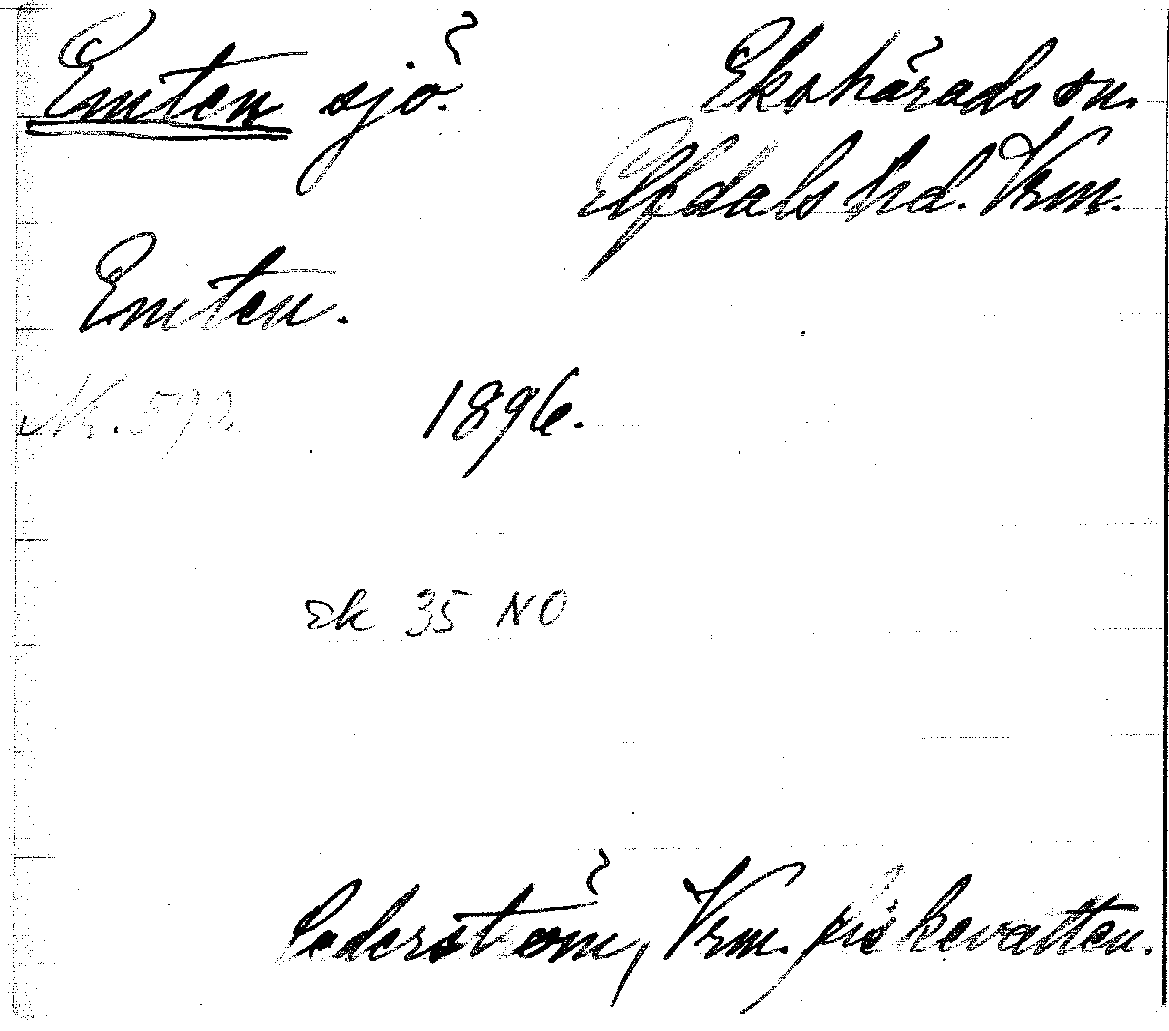 Emten sjö. Ekshärads sn.
Elfdals hd. Vrm.
Emten.
Nr. 592. 1896.
Ek 35 NO
Cederström, Vrm. fiskevatten.